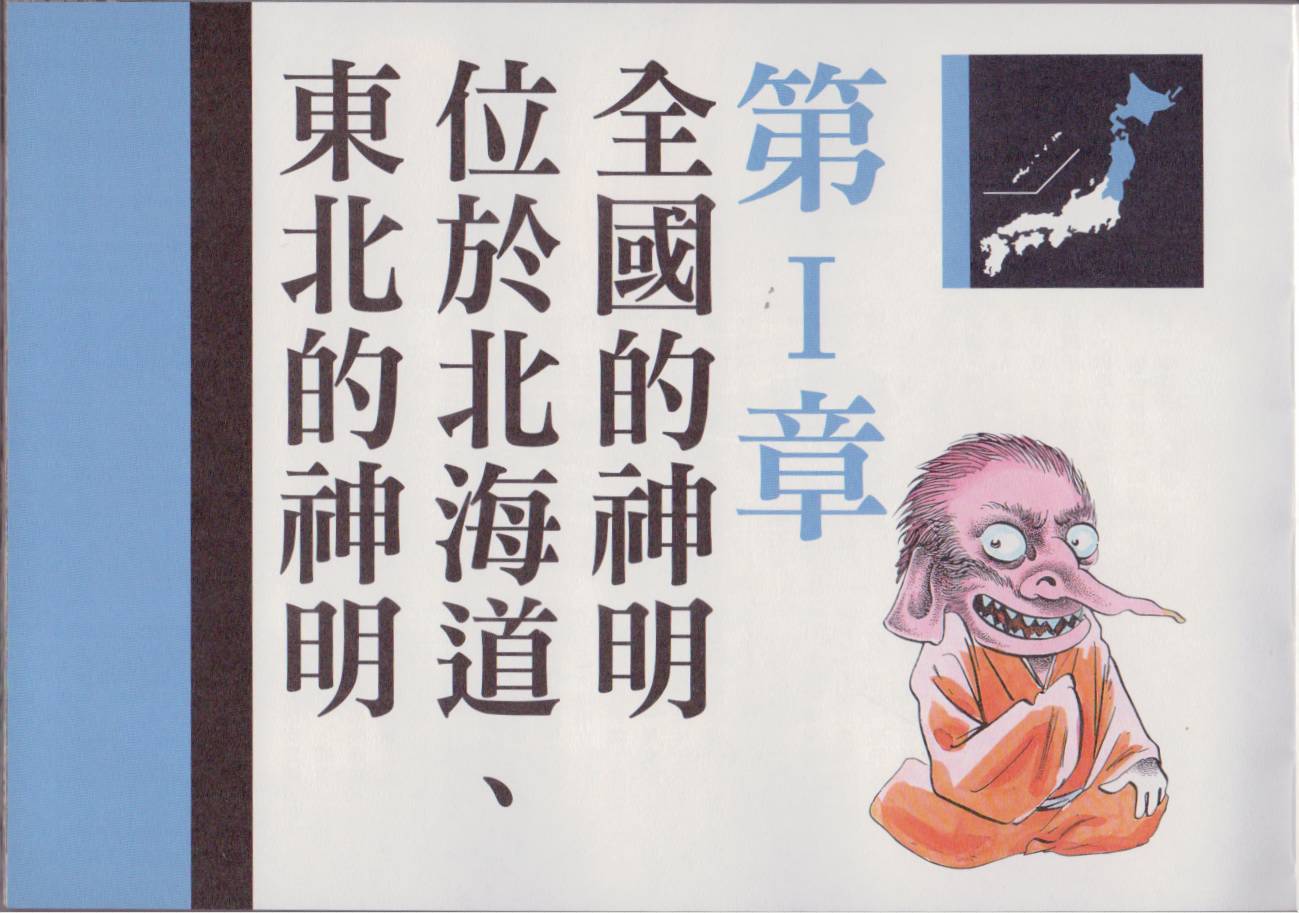 第Ⅰ章
全國的神明
位於北海道、
東北的神明